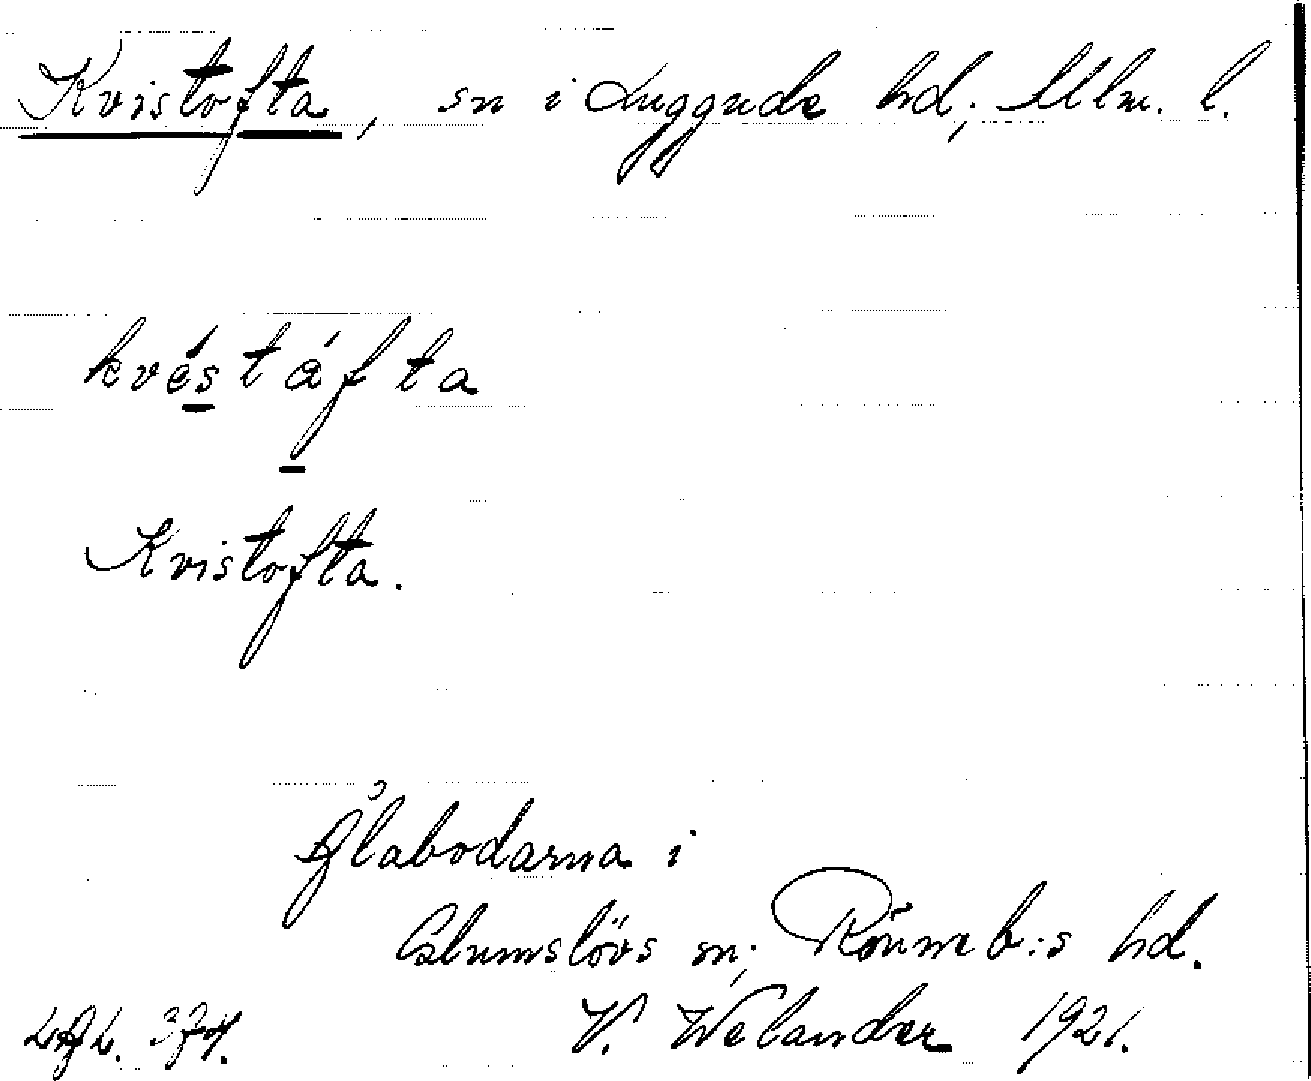 Kvistofta, sn i Luggude hd; Mlm. l.
kvéstáfta
Kvistofta.
Ålabodarna i
Glumslövs sn; Rönneb:s hd.
LAL. 374. V. Welander 1921.